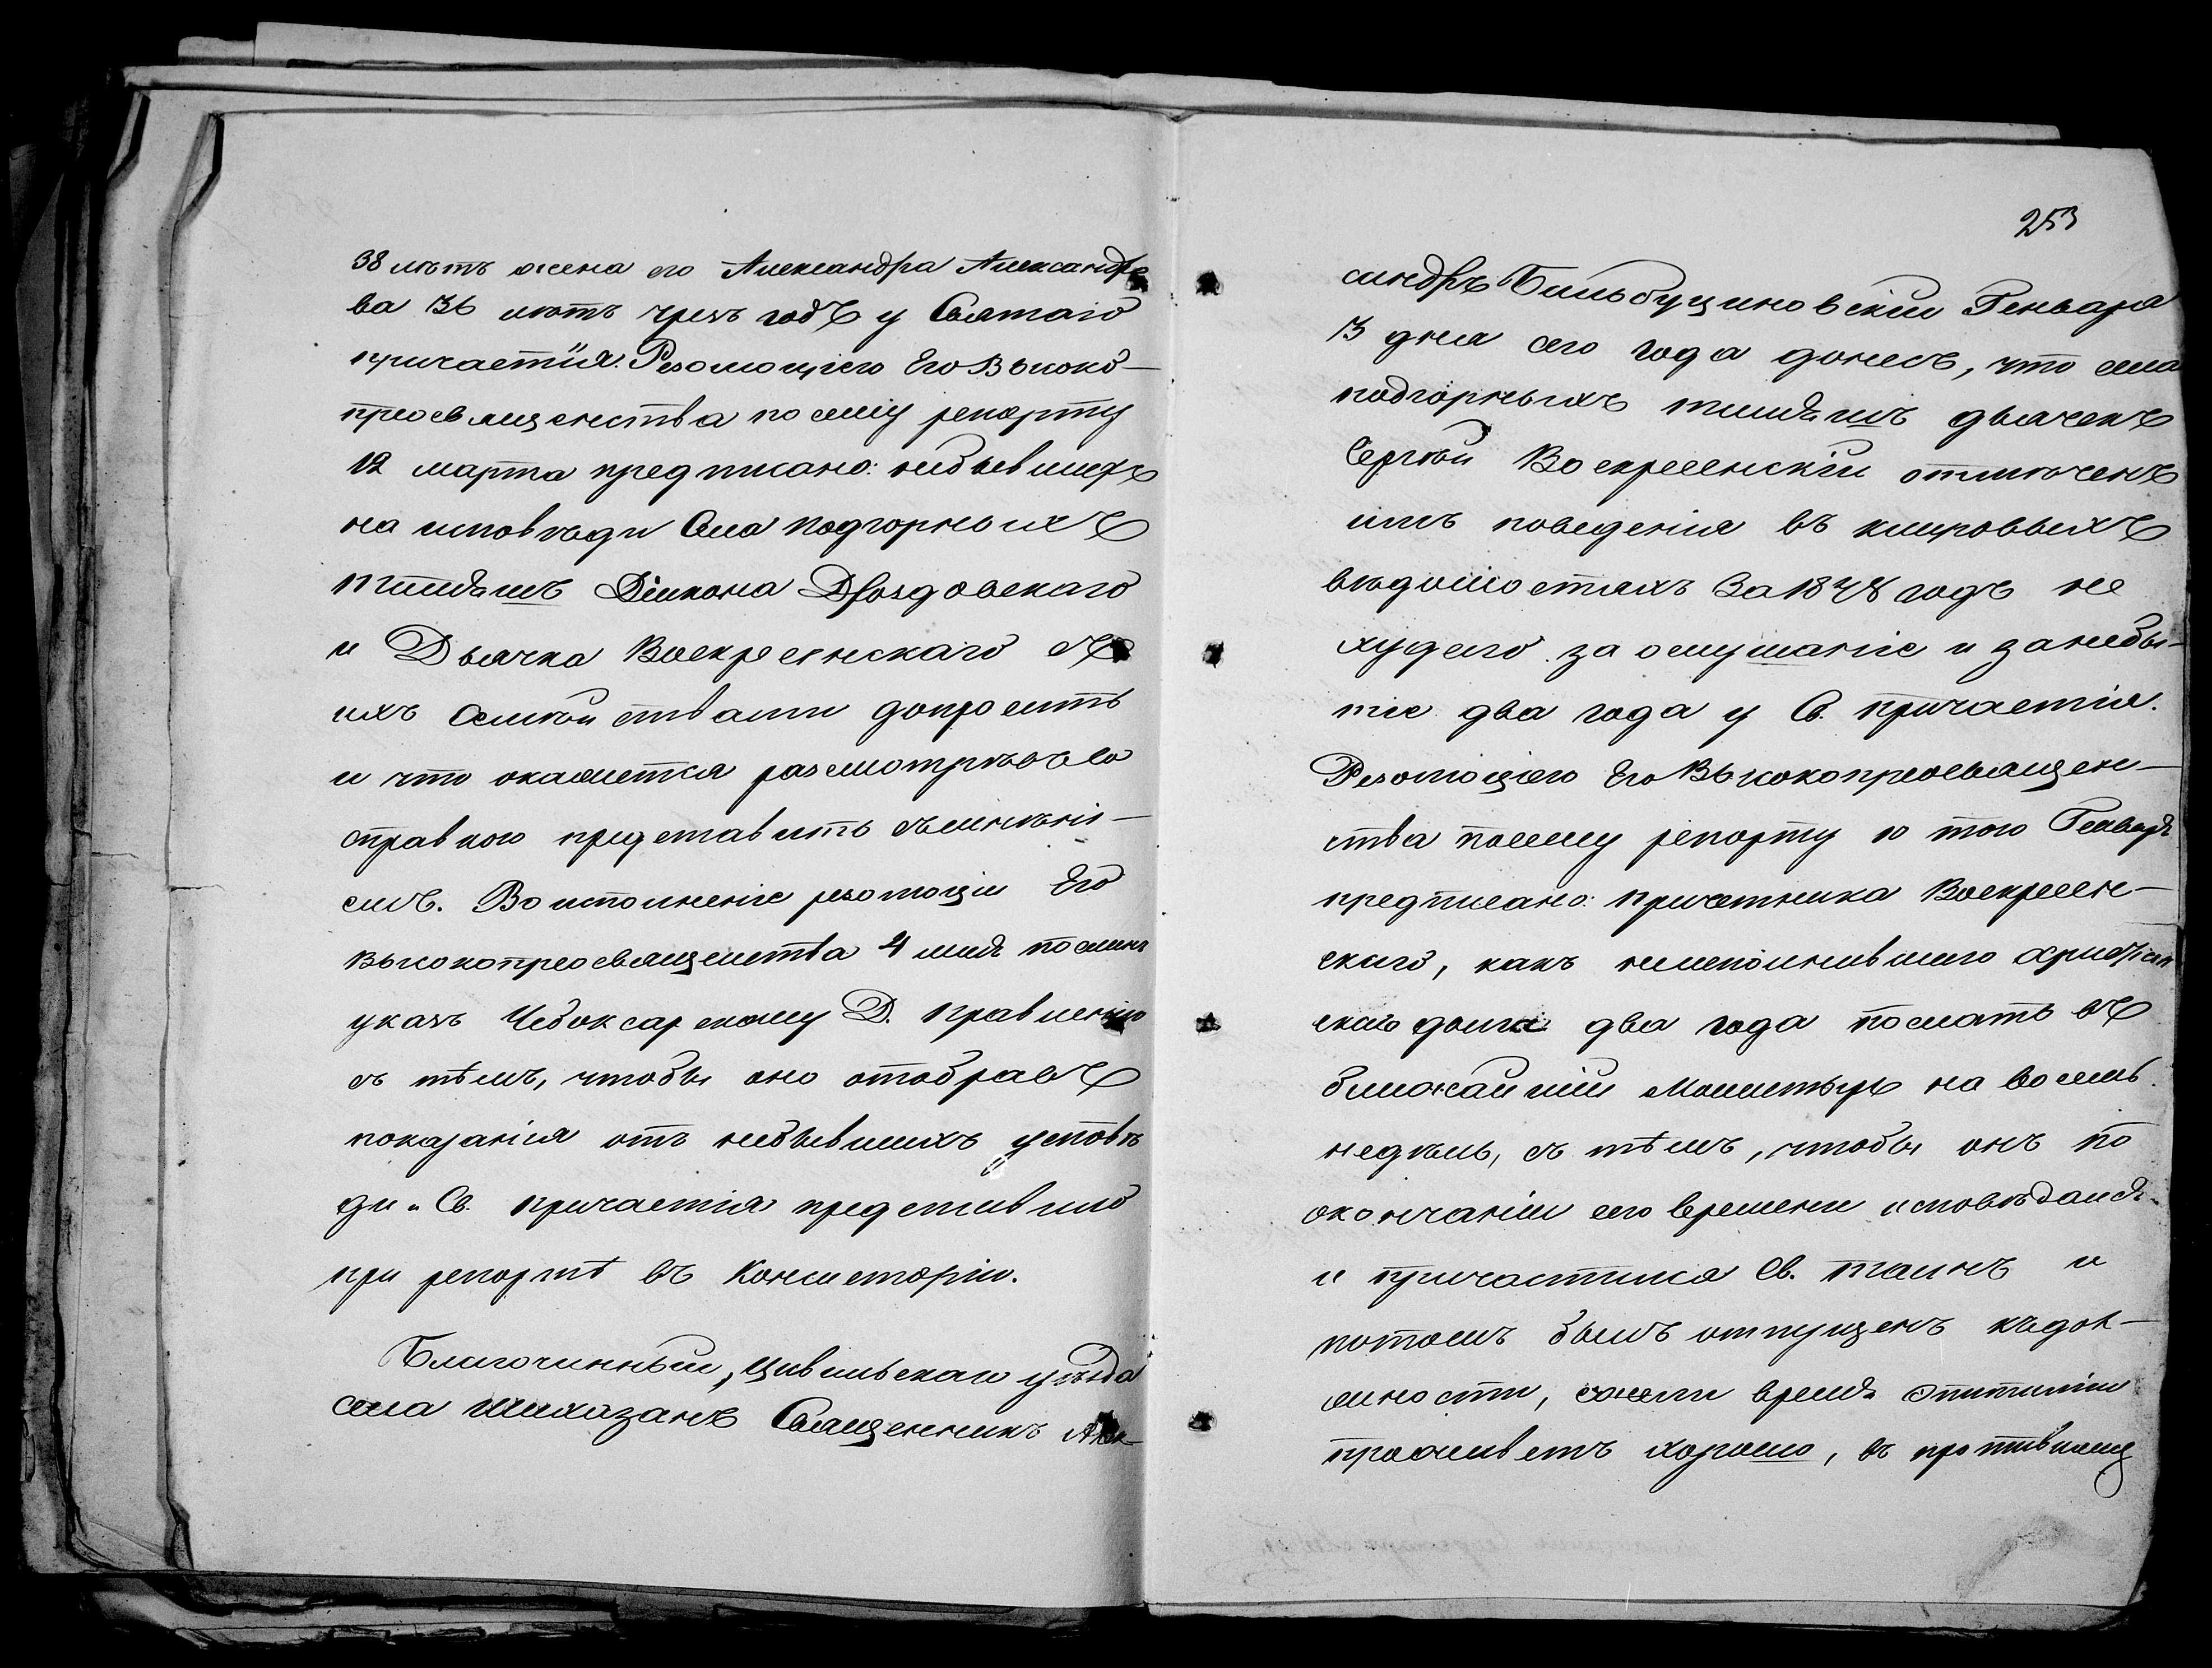 38 лѣтъ жена его Александра Александро
ва 36 лѣтъ чрезъ годъ у Святаго
причастія. Резолюціею Его Высоко-
преосвященства по сему репорту
12 марта предписано: небывшихъ
на исповѣди Села Подгорныхъ
Тимяшъ Діакона Дроздовскаго
и Дьячка Воскресенскаго съ
ихъ семѣйствами допросить
и что окажется разсмотрѣвъ со
справкою представить съ мнѣні-
емъ. Во исполненіе резолюціи Его
Высокопреосвященства 4 мая посланъ
указъ Чебоксарскому Д. Правленію
съ тѣмъ, чтобы оно отобравъ
показанія отъ небывшихъ у исповѣ
ди и Св. причастія представило
при репортѣ въ Консисторію.
Благочинный, Цивильскаго уѣзда
села Шихазанъ Священникъ Алек-
253
сандръ Бильбуциновскій Генваря
13 дня сего года донесъ, что села
Подгорныхъ Тимяшъ дьячекъ
Сергѣй Воскресенскій отмѣченъ
имъ поведенія въ клировыхъ
вѣдомостяхъ за 1848 годъ не
худаго за ослушаніе и за небы-
тіе два года у Св. причастія.
Резолюціею Его Высокопреосвящен-
ства по сему репорту 10 того Генваря
предписано: причетника Воскресен-
скаго, какъ неисполнившаго христіан
скаго долга два года послать въ
ближайшій Монастырь на восемь
недѣль, съ тѣмъ, чтобы онъ по
окончаніи сего времени исповѣдался
и причастился Св. таинъ и
потомъ былъ отпущенъ къ дол-
жности, ежели время эпитиміи
проживетъ хорошо, въ противному